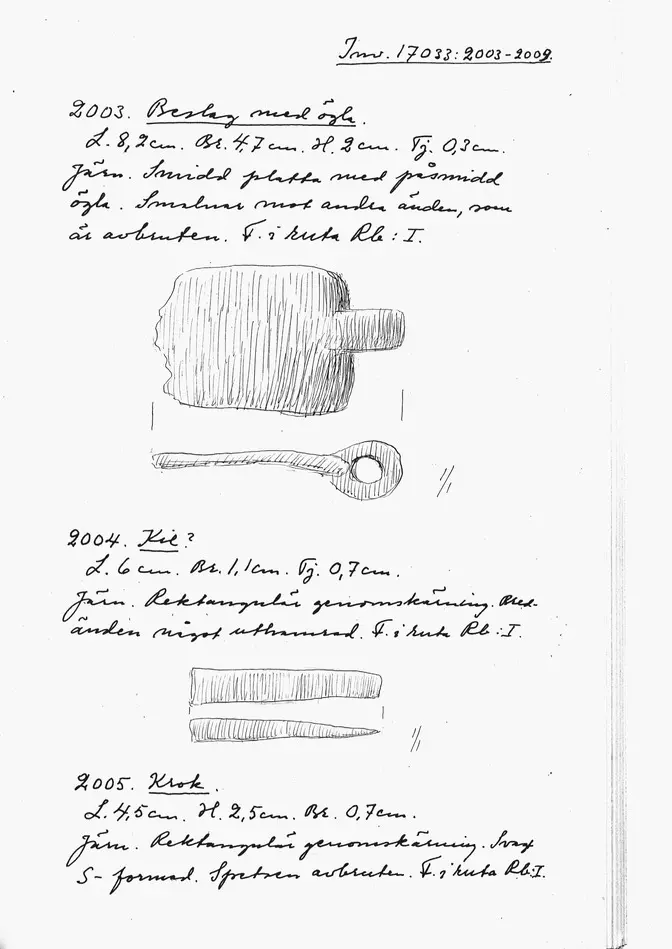 Inv. 17033:2003-2009.
2003. Beslag med ögla.
L. 8,2cm. Br. 4,7cm. H. 2cm. Tj. 0,3cm.
Järn. Smidd platta med påsmidd
ögla. Smalnar mot andra änden, som
är avbruten. F. i ruta Rb: I.
1/1
2004. Kil?
L. 6cm. Br. 1,1cm. Tj. 0,7cm.
Järn. Rektangulär genomskärning. Bred-
änden något uthamrad. F. i ruta Rb: I.
1/1
2005. Krok.
L. 4,5cm. H. 2,5cm. Br. 0,7cm.
Järn. Rektangulär genomskärning. Svagt
S-formad. Spetsen avbruten. F. i ruta Rb: I.